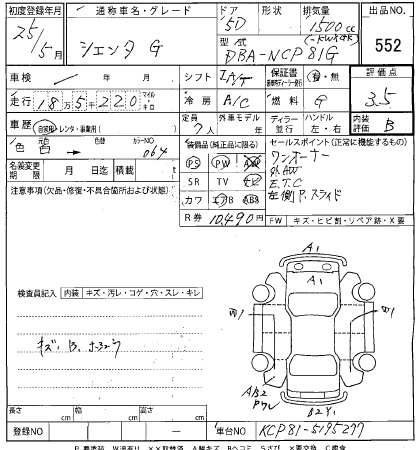 初度登録年月 通称車名・グレード ドア 形状 排気量 出品NO
25/5月 シエンタ G 5D 1500cc 552
型式 DBA-NCP81G
車検 / 年 月 シフト IA/T 保証書 有・無 評価点
走行 18万5千220 マイル キロ 冷房 A/C 燃料 G 3.5
車歴 自家用・レンタ・事業用( ) 定員 7人 外車モデル 年 ディーラー 並行 ハンドル 左・右 内装評価 B
色 色替 カラーNO 064
名義変更期限 月 日迄 積載
装備品(純正品に限る)
PS PW AW
SR TV
カワ エアB ABS
R券 10,490円
セールスポイント(正常に機能するもの)
ワンオーナー
社外AW
E.T.C
左側P.スライド
FW キズ・ヒビ割・リペア跡・X要
注意事項(欠品・修復・不具合箇所および状態)
検査員記入 内装 キズ・汚レ・コゲ・穴・スレ・キレ
キズ、B、
A1
A1
AB2
PWレ
B2Y1
長さ cm 幅 cm 高さ cm
登録NO ― 車台NO KCP81-5195277